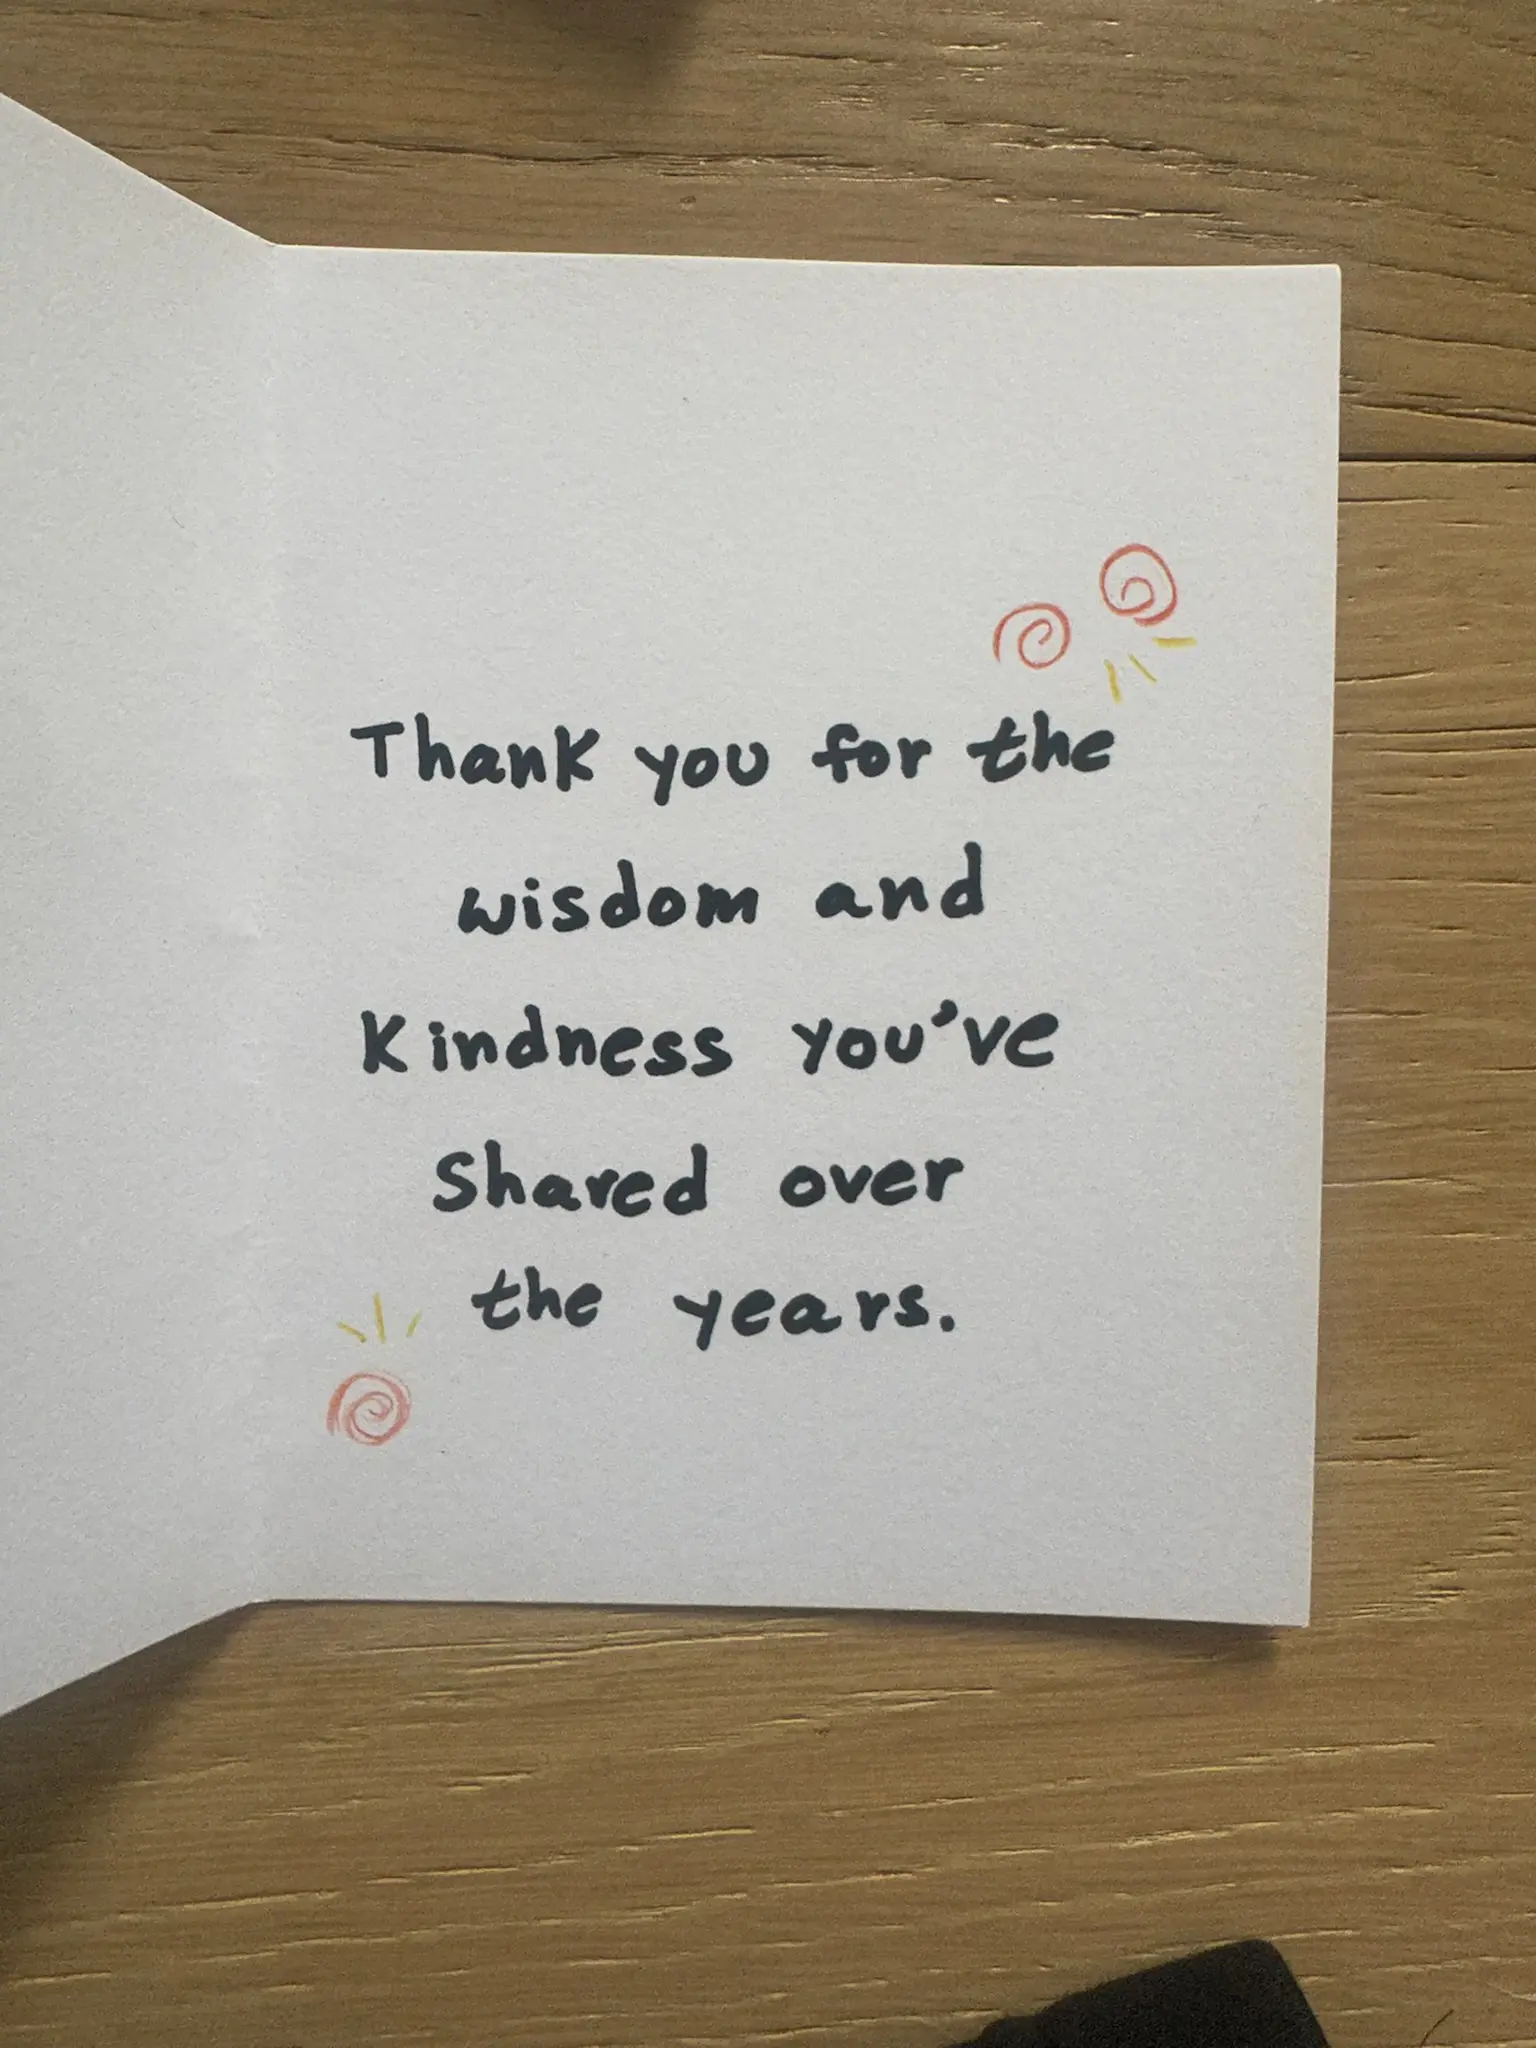 Thank you for the
wisdom and
Kindness you've
Shared over
the years.